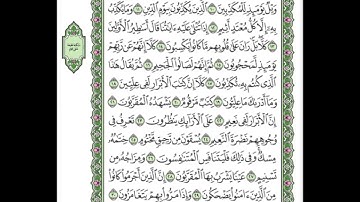 وَيْلٌ يَوْمَئِذٍ لِّلْمُكَذِّبِينَ ١٠ ٱلَّذِينَ يُكَذِّبُونَ بِيَوْمِ ٱلدِّينِ ١١ وَمَا يُكَذِّبُ
بِهِۦٓ إِلَّا كُلُّ مُعْتَدٍ أَثِيمٍ ١٢ إِذَا تُتْلَىٰ عَلَيْهِ ءَايَٰتُنَا قَالَ أَسَٰطِيرُ ٱلْأَوَّلِينَ
١٣ كَلَّا بَلْ رَانَ عَلَىٰ قُلُوبِهِم مَّا كَانُوا۟ يَكْسِبُونَ ١٤ كَلَّآ إِنَّهُمْ عَن رَّبِّهِمْ
يَوْمَئِذٍ لَّمَحْجُوبُونَ ١٥ ثُمَّ إِنَّهُمْ لَصَالُوا۟ ٱلْجَحِيمِ ١٦ ثُمَّ يُقَالُ هَٰذَا
ٱلَّذِى كُنتُم بِهِۦ تُكَذِّبُونَ ١٧ كَلَّآ إِنَّ كِتَٰبَ ٱلْأَبْرَارِ لَفِى عِلِّيِّينَ ١٨
وَمَآ أَدْرَىٰكَ مَا عِلِّيُّونَ ١٩ كِتَٰبٌ مَّرْقُومٌ ٢٠ يَشْهَدُهُ ٱلْمُقَرَّبُونَ ٢١
إِنَّ ٱلْأَبْرَارَ لَفِى نَعِيمٍ ٢٢ عَلَى ٱلْأَرَآئِكِ يَنظُرُونَ ٢٣ تَعْرِفُ فِى
وُجُوهِهِمْ نَضْرَةَ ٱلنَّعِيمِ ٢٤ يُسْقَوْنَ مِن رَّحِيقٍ مَّخْتُومٍ ٢٥ خِتَٰمُهُۥ
مِسْكٌ وَفِى ذَٰلِكَ فَلْيَتَنَافَسِ ٱلْمُتَنَٰفِسُونَ ٢٦ وَمِزَاجُهُۥ مِن
تَسْنِيمٍ ٢٧ عَيْنًا يَشْرَبُ بِهَا ٱلْمُقَرَّبُونَ ٢٨ إِنَّ ٱلَّذِينَ أَجْرَمُوا۟ كَانُوا۟
مِنَ ٱلَّذِينَ ءَامَنُوا۟ يَضْحَكُونَ ٢٩ وَإِذَا مَرُّوا۟ بِهِمْ يَتَغَامَزُونَ ٣٠